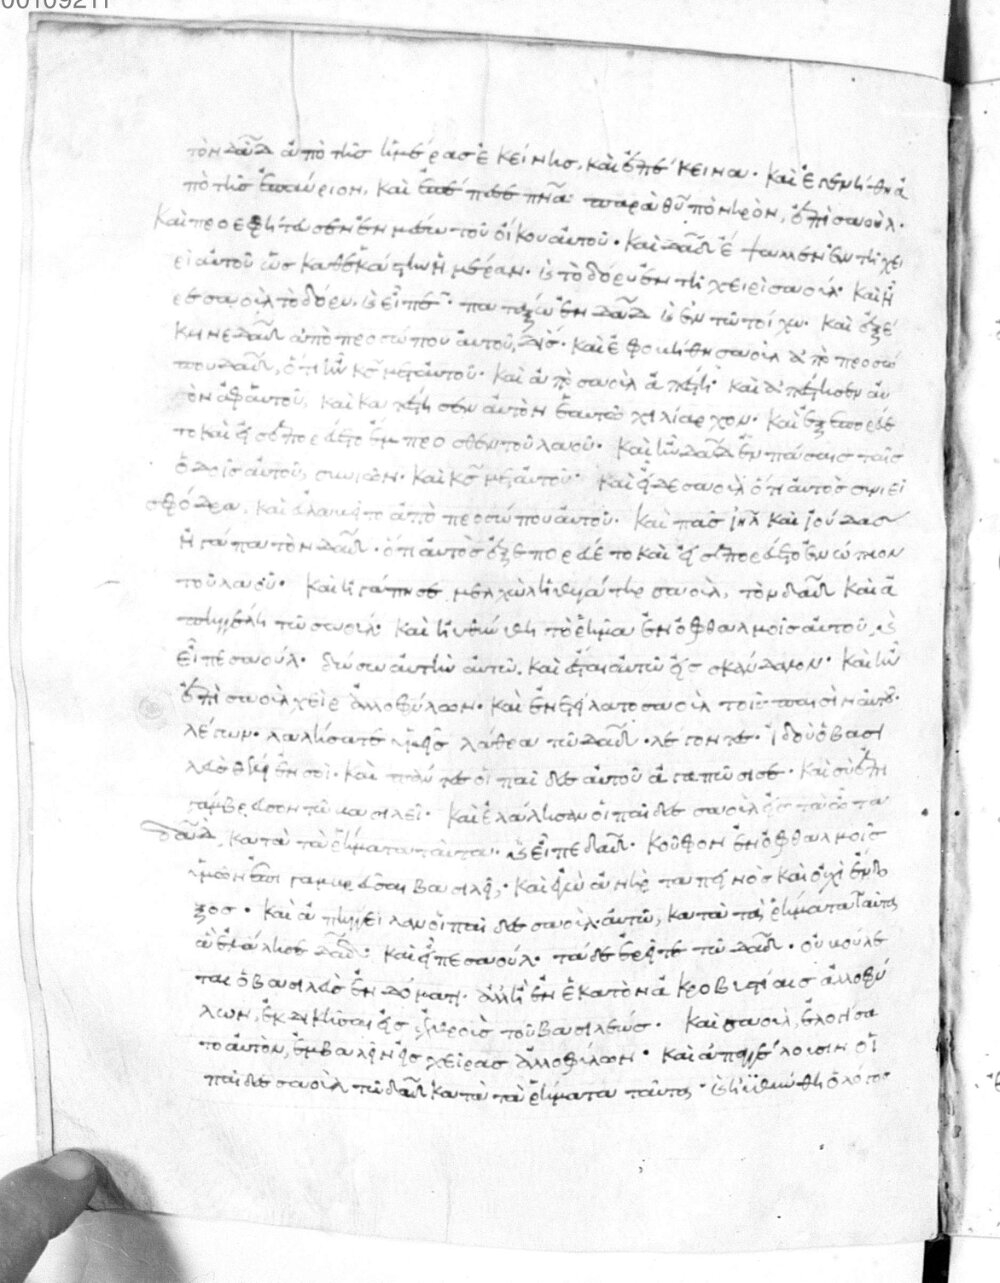 00109211
τὸν δαδ ἀπὸ τῆς ἡμέρας ἐκείνης, καὶ ἐπέκεινα· καὶ ἐγενήθη ἀ
πὸ τῆς ἐπαύριον, καὶ ἔπεσε πνα παρὰ θυ πονηρὸν, ἐπὶ σαούλ·
καὶ προεφήτευσεν ἐν μέσω τοῦ οἴκου αὐτοῦ· καὶ δαδ ἔψαλλεν ἐν τῆ χει
ρὶ αὐτοῦ ὡς καθ' ἑκάστην ἡμέραν· κ τὸ δόρυ ἐν τῆ χειρὶ σαούλ· καὶ ἦ
ρε σαοὺλ τὸ δόρυ, κ εἶπε· πατάξω ἐν δαδ κ ἐν τῶ τοίχω· καὶ ἐξέ
κλινε δαδ ἀπὸ προσώπου αὐτοῦ, δίς· καὶ ἐφοβήθη σαοὺλ ἀπὸ προσώ
που δαδ, ὅτι ἦν κς μετ' αὐτοῦ· καὶ ἀπὸ σαοὺλ ἀπέστη· καὶ ἀπέστησεν αὐ
τὸν ἀφ' αὐτοῦ, καὶ κατέστησεν αὐτὸν ἑαυτῶ χιλίαρχον· καὶ ἐξεπορεύε
το καὶ εἰσεπορεύετο ἔμπροσθεν τοῦ λαοῦ· καὶ ἦν δαδ ἐν πάσαις ταῖς
ὁδοῖς αὐτοῦ, συνιών· καὶ κς μετ' αὐτοῦ· καὶ εἶδε σαοὺλ ὅτι αὐτὸς συνιεῖ
σφόδρα, καὶ εὐλαβεῖτο ἀπὸ προσώπου αὐτοῦ· καὶ πᾶς ιηλ καὶ ἰούδας
ἠγάπα τὸν δαδ· ὅτι αὐτὸς ἐξεπορεύετο καὶ εἰσεπορεύετο ἐνώπιον
τοῦ λαοῦ· καὶ ἠγάπησε μελχὼλ ἡ θυγάτηρ σαοὺλ, τὸν δαδ καὶ ἀ
πηγγέλη τῶ σαούλ· καὶ ηὐθύνθη τὸ ῥῆμα ἐν ὀφθαλμοῖς αὐτοῦ, κ
εἶπε σαούλ· δώσω αὐτὴν αὐτῶ, καὶ ἔσται αὐτῶ εἰς σκάνδαλον· καὶ ἦν
ἐπὶ σαοὺλ χεὶρ ἀλλοφύλων· καὶ ἐνετείλατο σαοὺλ τοῖς παισὶν αὐτοῦ·
λέγων· λαλήσατε ὑμεῖς λάθρα τῶ δαδ· λέγοντες· ἰδοὺ ὁ βασι
λεὺς θέλει ἐν σοὶ· καὶ πάντες οἱ παῖδες αὐτοῦ ἀγαπῶσί σε· καὶ σὺ ἐπι
γάμβρευσον τῶ βασιλεῖ· καὶ ἐλάλησαν οἱ παῖδες σαοὺλ εἰς τὰ ὦτα
δαδ, κατὰ τὰ ῥήματα ταῦτα· κ εἶπε δαδ· κοῦφον ἐν ὀφθαλμοῖς
ὑμῶν ἐπιγαμβρεῦσαι βασιλεῖ, καὶ ἐγὼ ἀνὴρ ταπεινὸς καὶ οὐχὶ ἔνδο
ξος· καὶ ἀπήγγειλαν οἱ παῖδες σαοὺλ αὐτῶ, κατὰ τὰ ῥήματα ταῦτα
ἃ ἐλάλησε δαδ· καὶ εἶπε σαούλ· τάδε ἐρεῖτε τῶ δαδ· οὐ βούλε
ται ὁ βασιλεὺς ἐν δόματι· ἀλλ' ἢ ἐν ἑκατὸν ἀκροβυστίαις ἀλλοφύ
λων, ἐκδικῆσαι εἰς ἐχθροὺς τοῦ βασιλέως· καὶ σαοὺλ, ἐλογίσα
το αὐτὸν, ἐμβαλεῖν εἰς χεῖρας ἀλλοφύλων· καὶ ἀπαγγέλουσιν οἱ
παῖδες σαοὺλ τῶ δαδ κατὰ τὰ ῥήματα ταῦτα· κ ηὐθύνθη ὁ λόγος